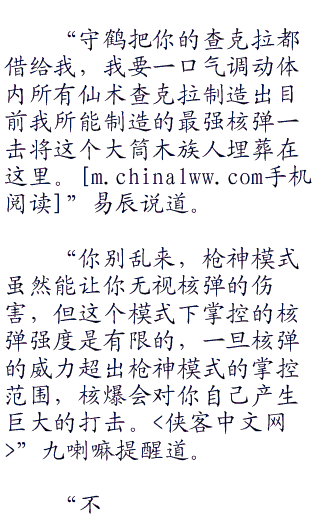 “守鹤把你的查克拉都
借给我，我要一口气调动体
内所有仙术查克拉制造出目
前我所能制造的最强核弹一
击将这个大筒木族人埋葬在
这里。[m.china1ww.com手机
阅读]”易辰说道。
“你别乱来，枪神模式
虽然能让你无视核弹的伤
害，但这个模式下掌控的核
弹强度是有限的，一旦核弹
的威力超出枪神模式的掌控
范围，核爆会对你自己产生
巨大的打击。<侠客中文网
>”九喇嘛提醒道。
“不